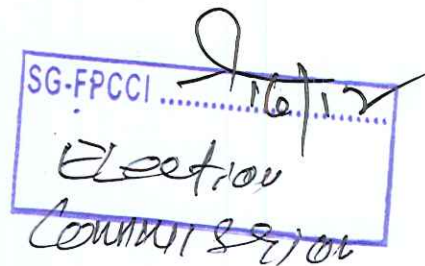 SG-FPCCI ................ 16/12
Election
Commission